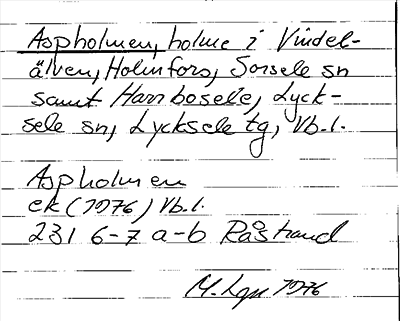 Aspholmen, holme i Vindel-
älven, Holmfors, Sorsele sn
samt Harrbosele, Lyck-
sele sn, Lycksele tg, Vb.l.
Aspholmen
ek (1976) Vb.l.
231 6-7 a-b Råstrand
1976